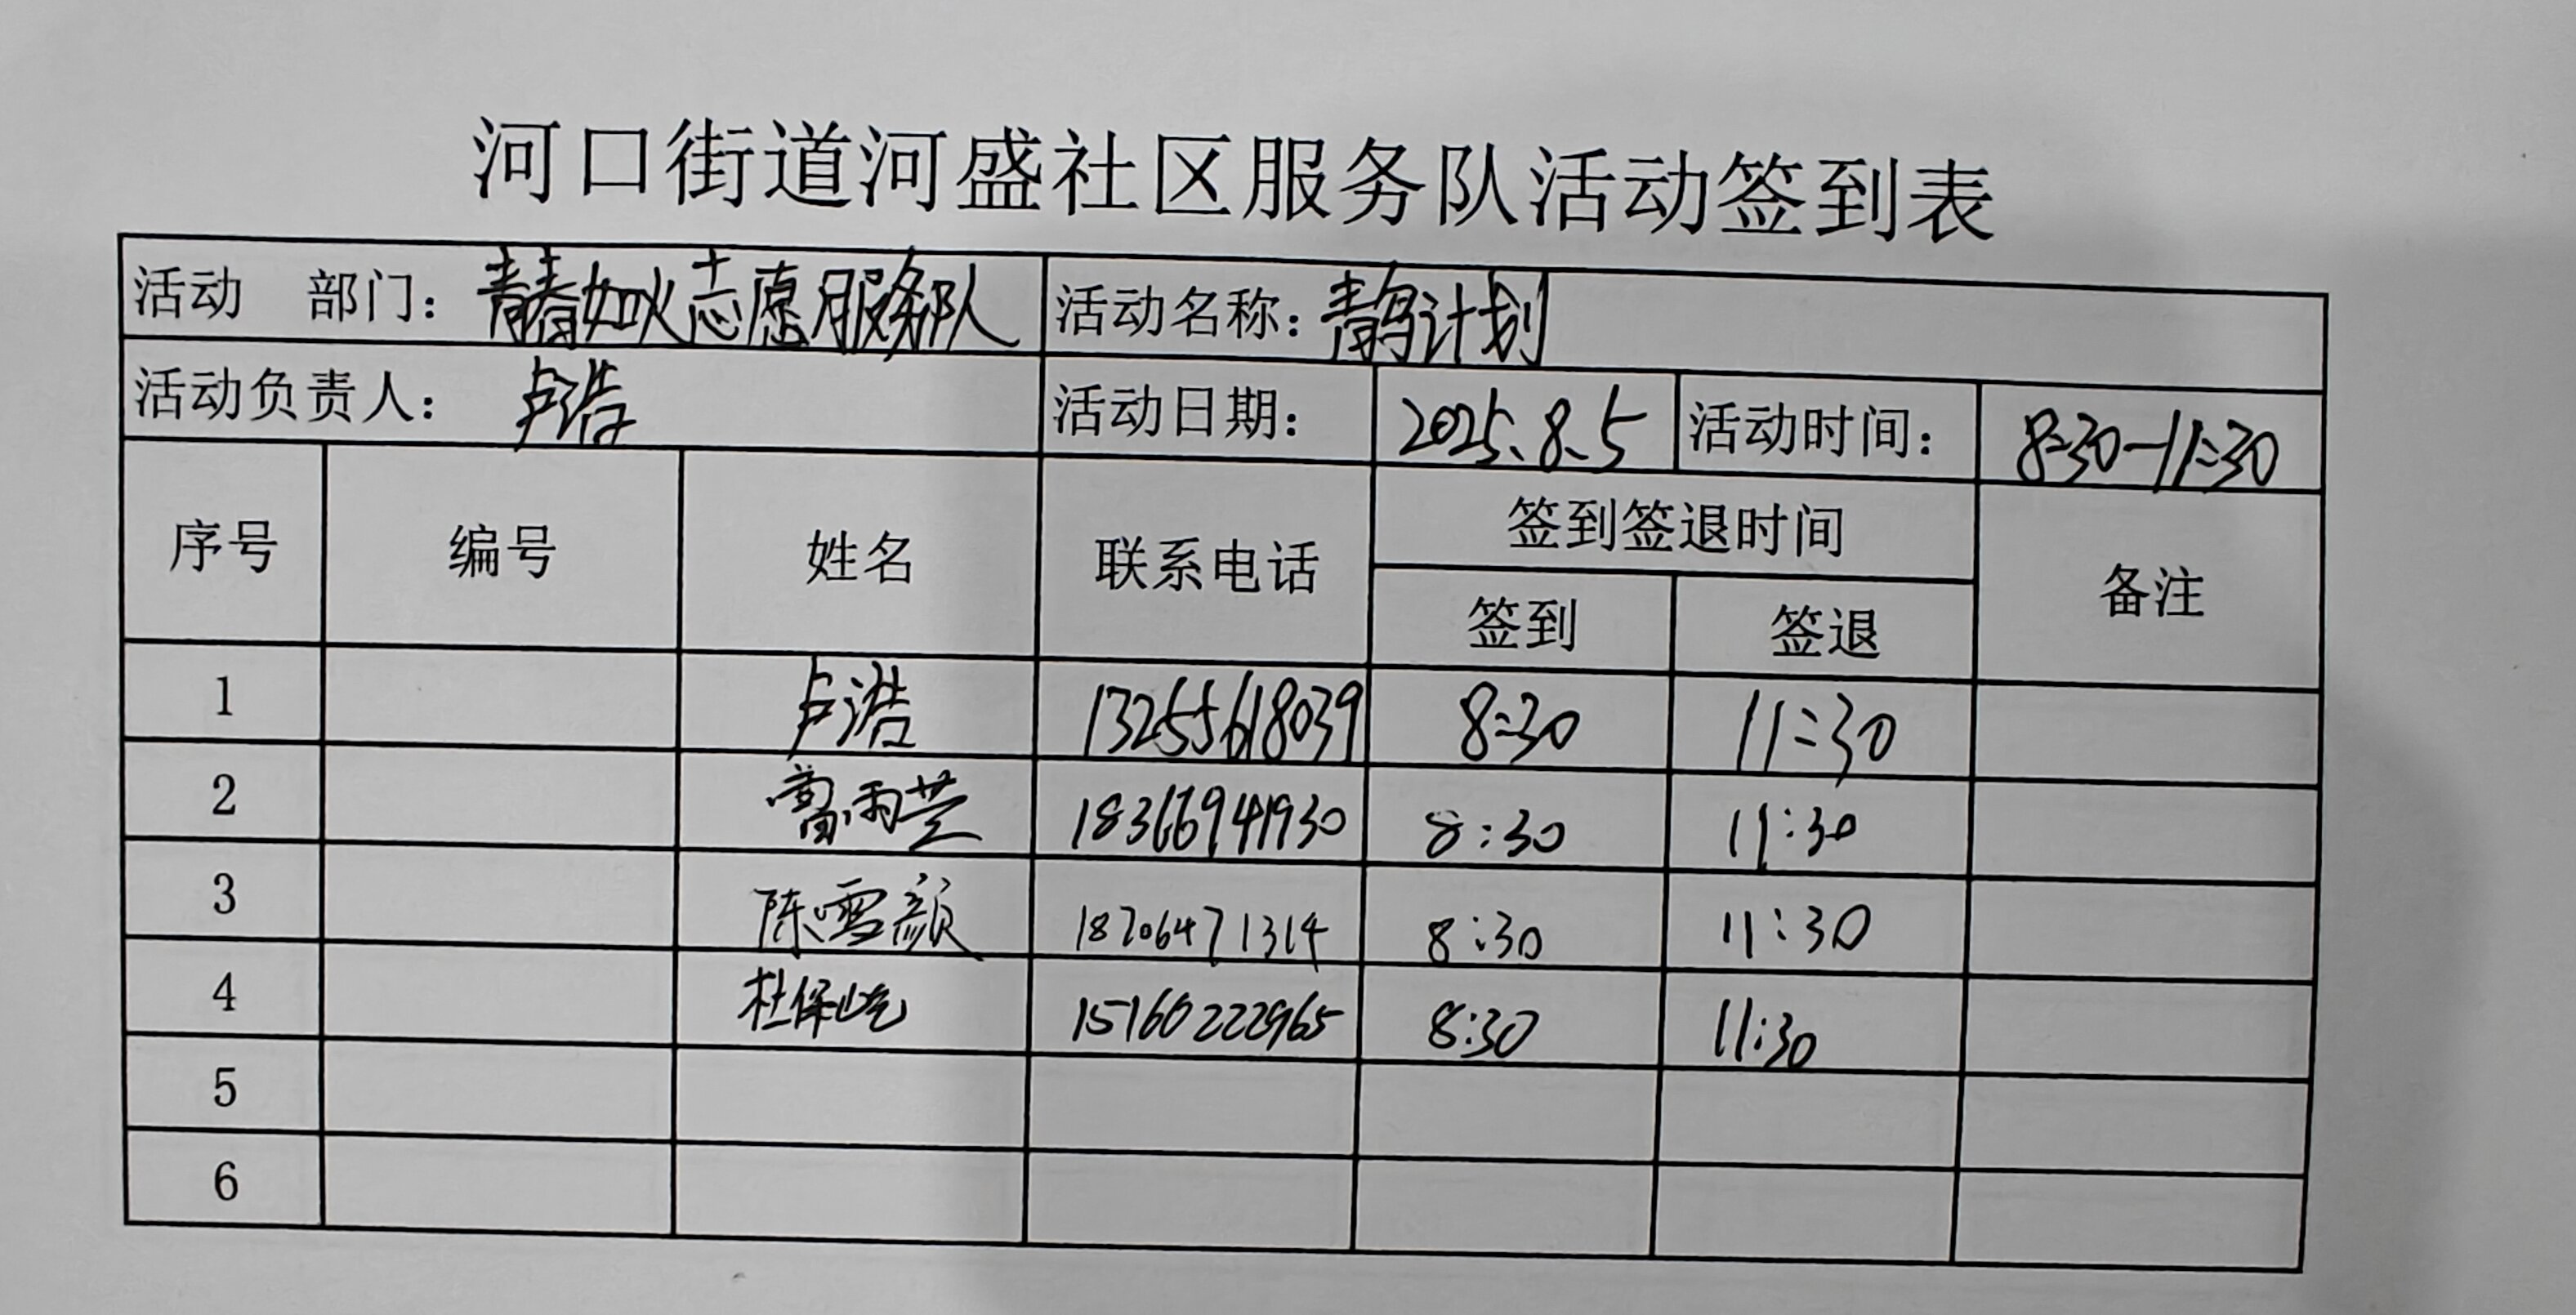 河口街道河盛社区服务队活动签到表
活动 部门: 青春如火志愿服务队 活动名称: 青鸟计划
活动负责人: 卢浩 活动日期: 2025.8.5 活动时间: 8:30-11:30
序号 编号 姓名 联系电话 签到签退时间 备注
签到 签退
1 卢浩 13255618039 8:30 11:30
2 雨芝 18366941930 8:30 11:30
3 陈雪颜 18706471314 8:30 11:30
4 杜保屹 15160222965 8:30 11:30
5
6